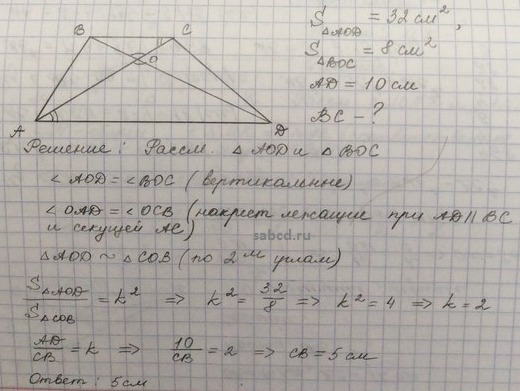 B C
O
A D
S△AOD = 32 см²,
S△BOC = 8 см²
AD = 10 см
BC - ?
Решение: Рассм. △ AOD и △ BOC
∠ AOD = ∠ BOC (вертикальные)
∠ OAD = ∠ OCB (накрест лежащие при AD || BC
и секущей AC)
sabcd.ru
△ AOD ~ △ COB (по 2ᵐ углам)
S△AOD / S△COB = k² => k² = 32/8 => k² = 4 => k = 2
AD/CB = k => 10/CB = 2 => CB = 5 см
Ответ: 5 см